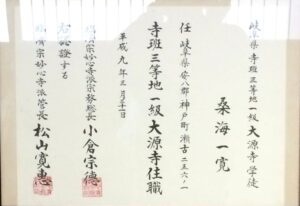 岐阜県 寺班三等地一級 大源寺学徒
桑海一寛
任 岐阜県安八郡神戸町瀬古二五六ノ一
寺班三等地一級大源寺住職
平成九年三月二十一日
臨済宗妙心寺派宗務総長 小倉宗徳
右認證する
臨済宗妙心寺派管長 松山寛恵